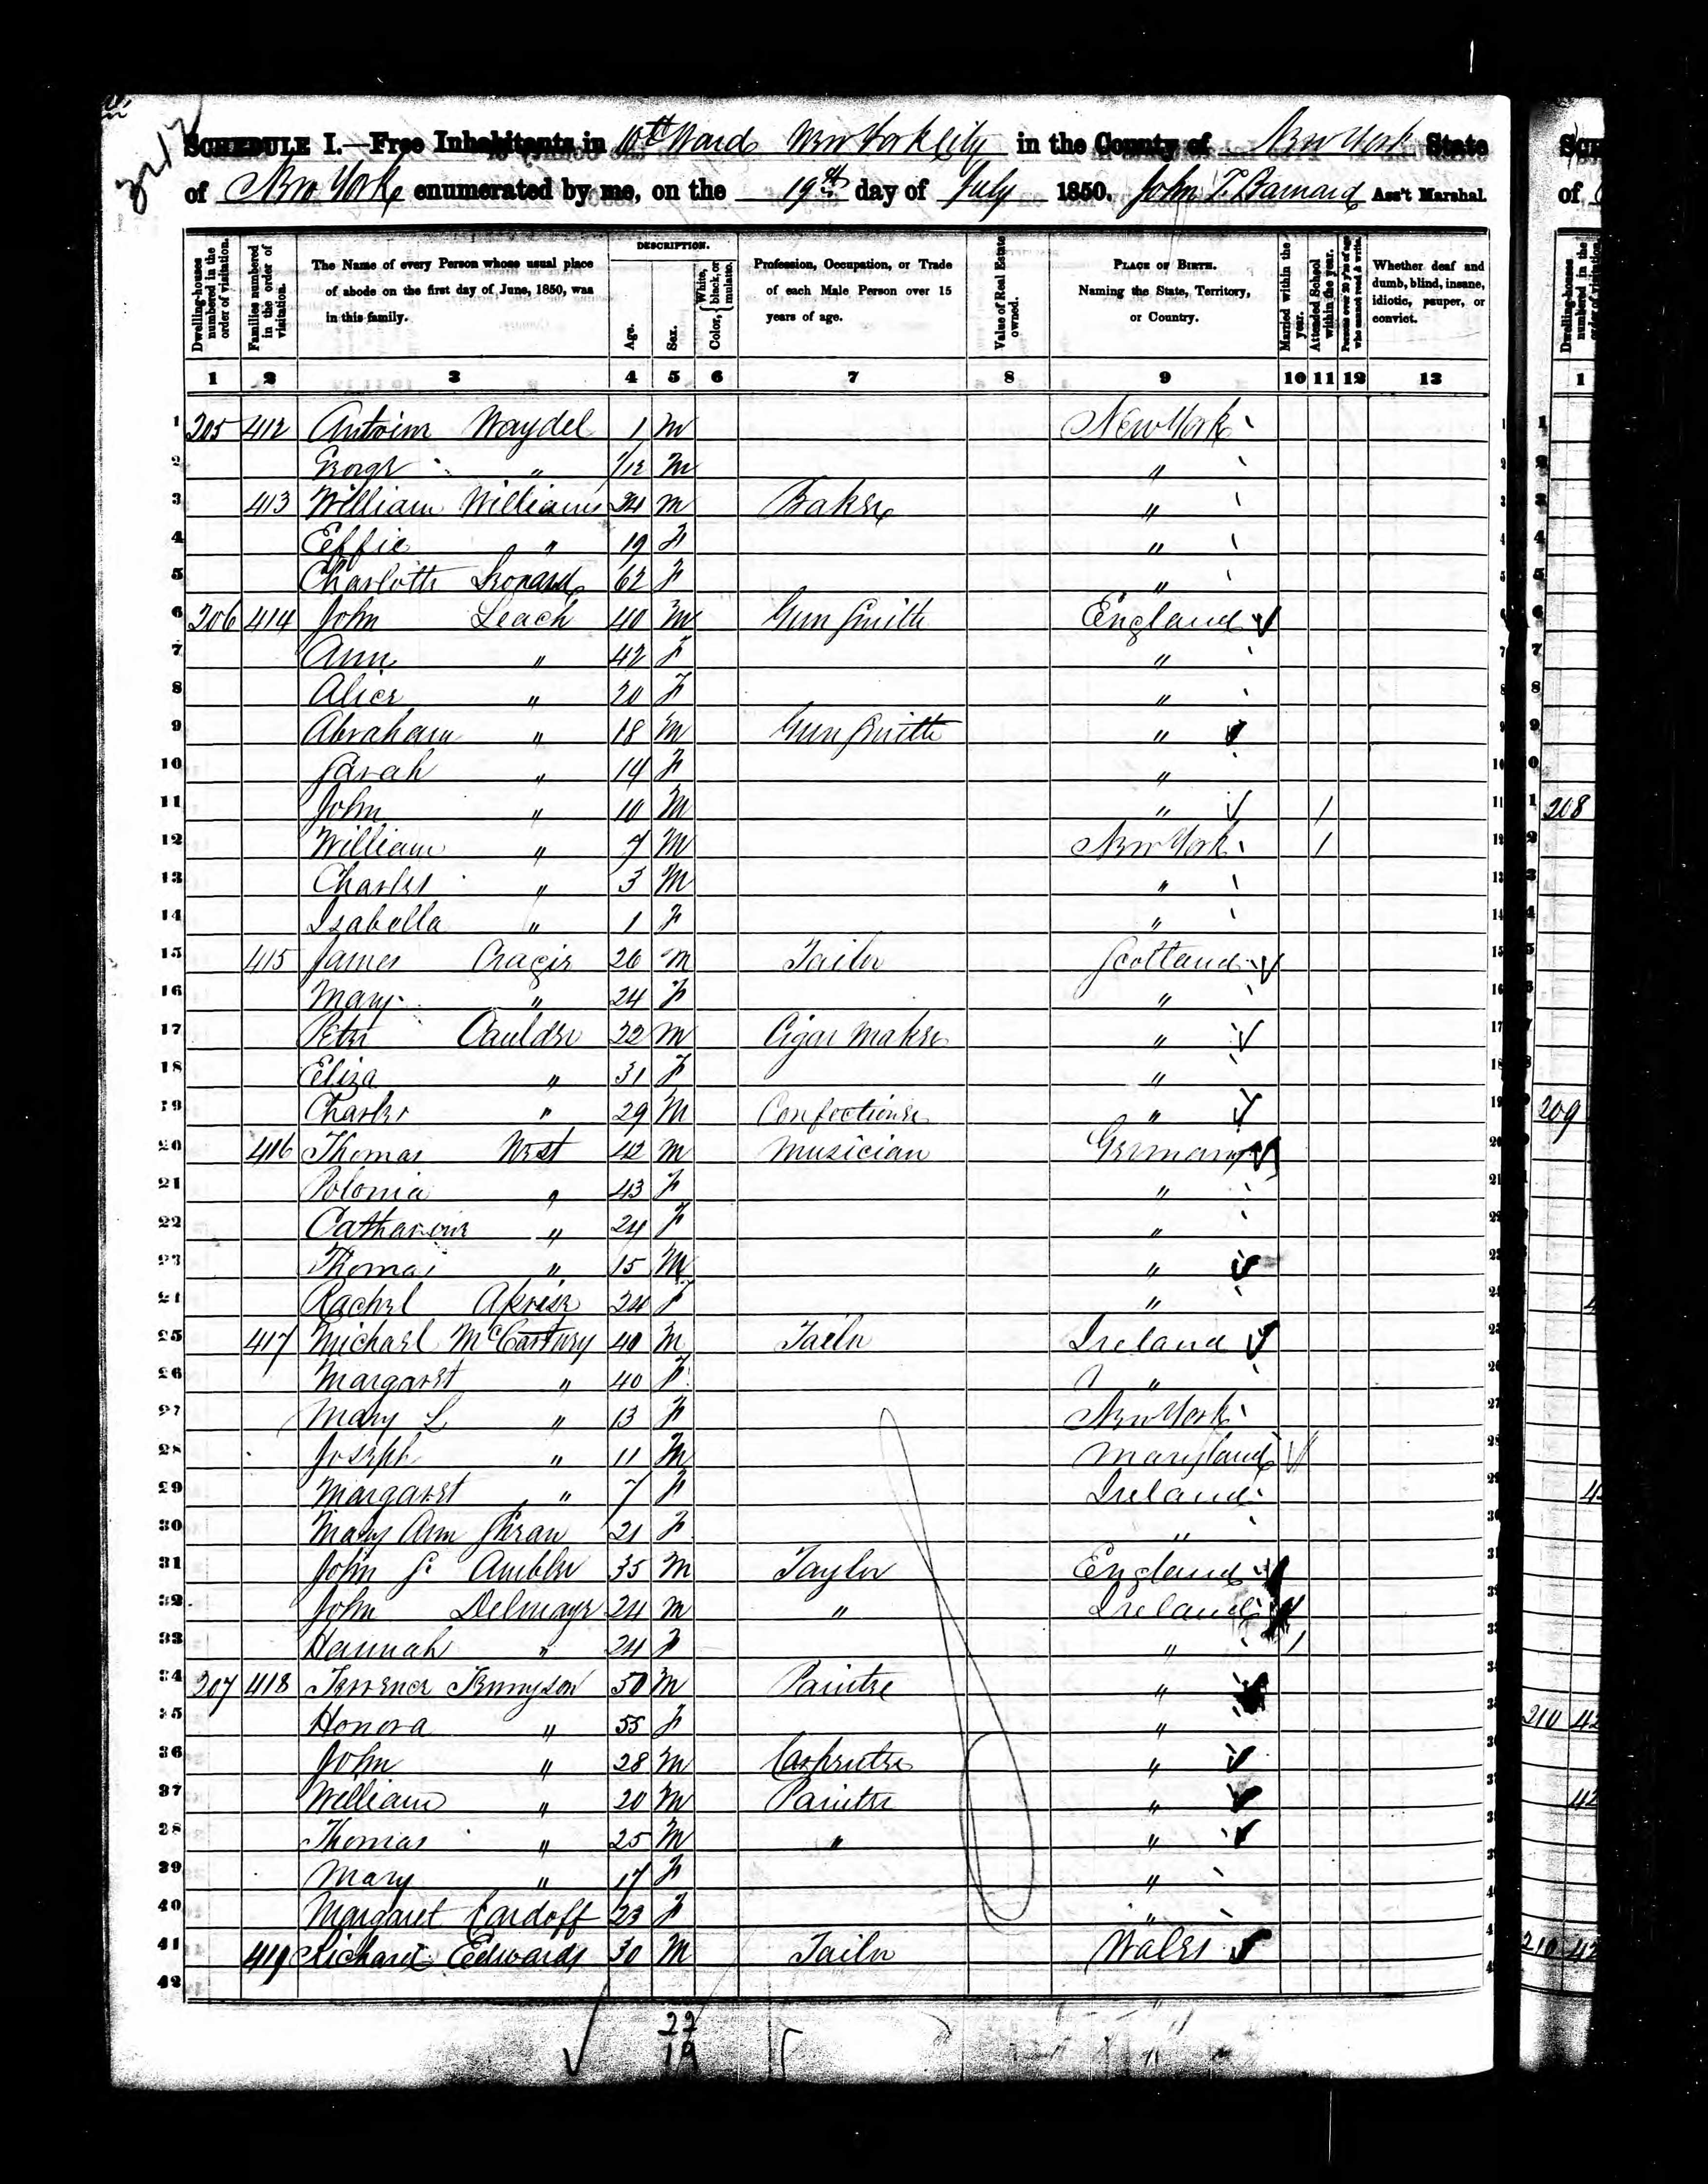 3217
SCHEDULE I.—Free Inhabitants in 10th Ward New York City in the County of New York State
of New York enumerated by me, on the 19th day of July 1850. John T. Barnard Ass't Marshal.
Dwelling-houses numbered in the order of visitation. Families numbered in the order of visitation. The Name of every Person whose usual place of abode on the first day of June, 1850, was in this family. DESCRIPTION. Age. Sex. Color, { White, black, or mulatto. Profession, Occupation, or Trade of each Male Person over 15 years of age. Value of Real Estate owned. PLACE OF BIRTH. Naming the State, Territory, or Country. Married within the year. Attended School within the year. Persons over 20 y'rs of age who cannot read & write. Whether deaf and dumb, blind, insane, idiotic, pauper, or convict.
1 2 3 4 5 6 7 8 9 10 11 12 13
1 205 412 Waydel 1 M New York
2 George " 1/12 M "
3 413 William Williams 24 M Baker "
4 Effie " 19 F "
5 Charlotte Leonard 62 F "
6 206 414 John Leach 40 M Gun Smith England
7 Ann " 42 F "
8 Alice " 20 F "
9 Abraham " 18 M Gun Smith "
10 Sarah " 14 F "
11 John " 10 M " 1
12 William " 7 M New York 1
13 Charles " 3 M "
14 Isabella " 1 F "
15 415 James Cragie 26 M Tailor Scotland
16 Mary " 24 F "
17 Peter Caulder 22 M Cigar Maker "
18 Eliza " 31 F "
19 Charles " 29 M Confectioner "
20 416 Thomas West 42 M Musician Germany
21 Polonia " 43 F "
22 Catharine " 24 F "
23 Thomas " 15 M "
24 Rachel 24 F "
25 417 Michael McCartney 40 M Tailor Ireland
26 Margaret " 40 F "
27 Mary L " 13 F New York
28 Joseph " 11 M Maryland
29 Margaret " 7 F Ireland
30 Mary Ann 21 F "
31 John Ambler 35 M Taylor England
32 John Delmayr 24 M " Ireland
33 Hannah " 24 F " 1
34 207 418 Terrence Tennyson 50 M Painter "
35 Honora " 55 F "
36 John " 28 M Carpenter "
37 William " 20 M Painter "
38 Thomas " 25 M " "
39 Mary " 17 F "
40 Margaret Cardoff 23 F "
41 419 Richard Edwards 30 M Tailor Wales
42
22
19
208
209
210 42
42
210 42